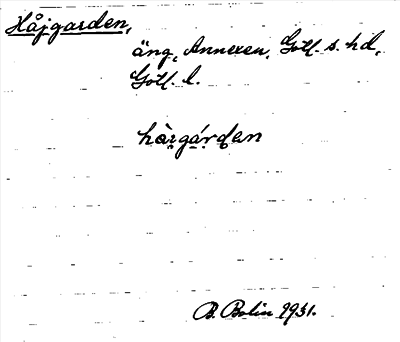 Håjgarden,
äng, Annexen, Gotl. s. hd,
Gotl. l.
hàrgárden
B. Bolin 1931.